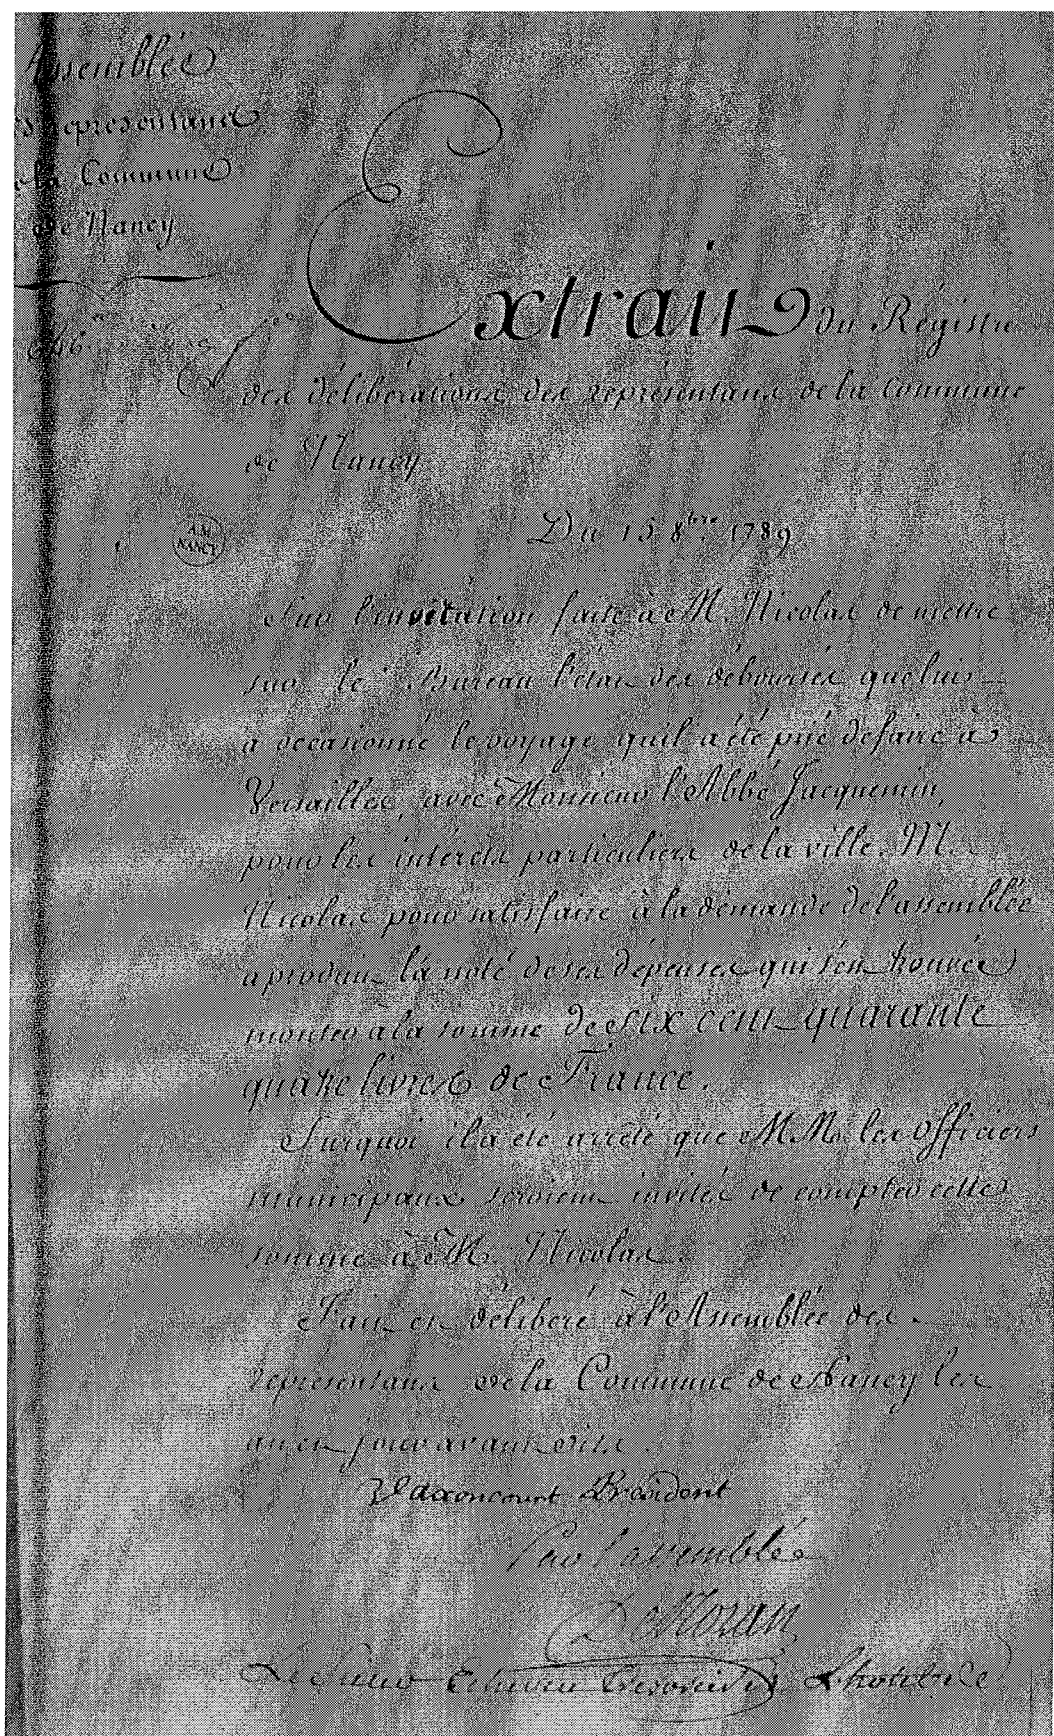 Assemblée
représentans
de la Commune
de Nancy
Extrait du Régistre
des délibérations des représentans de la commune
de Nancy
A.M.
NANCY
Du 15 8bre 1789
Sur l'invitation faite à M. Nicolas de mettre
sur le Bureau l'état des déboursés que lui
a occasionné le voyage qu'il a été prié de faire à
Versailles, avec Monsieur l'Abbé Jacquemin,
pour les intérêts particuliers de la ville. M.
Nicolas pour satisfaire à la demande de l'assemblée
a produit la note de ses dépenses qui s'en trouvée
monter a la somme de six cent quarante
quatre livres de France.
Surquoi il a été arrêté que M.M. les officiers
municipaux seroient invités de compter cette
somme à M. Nicolas.
Fait et délibéré à l'Assemblée des
représentans de la Commune de Nancy les
an et jour avant dits
Vaxoncourt
Par l'assemblée
Le Sieur